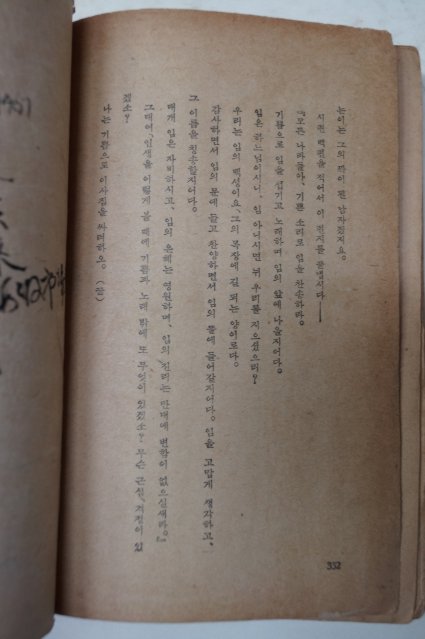 논이는 그의 짝이 된 남자겠지요.
시편 백편을 적어서 이 편지를 끝냅시다――
『모든 나라들아, 기쁜 소리로 임을 찬송하라.
기쁨으로 임을 섬기고 노래하며 임의 앞에 나올지어다.
임은 하느님이시니, 임 아니시면 뉘 우리를 지으셨으리?
우리는 임의 백성이요, 그의 목장에 길 되는 양이로다.
감사하면서 임의 문에 들고 찬양하면서 임의 뜰에 들어갈지어다. 임을 고맙게 생각하고,
그 이름을 칭송할지어다.
대개 임은 자비하시고, 임의 은혜는 영원하며, 임의 진리는 만대에 변함이 없으실새라.』
그대여, 인생을 이렇게 볼 때에 기쁨과 노래 밖에 또 무엇이 있겠소? 무슨 근심, 걱정이 있
겠소?
나는 기쁨으로 이사짐을 싸려하오. (끝)
332